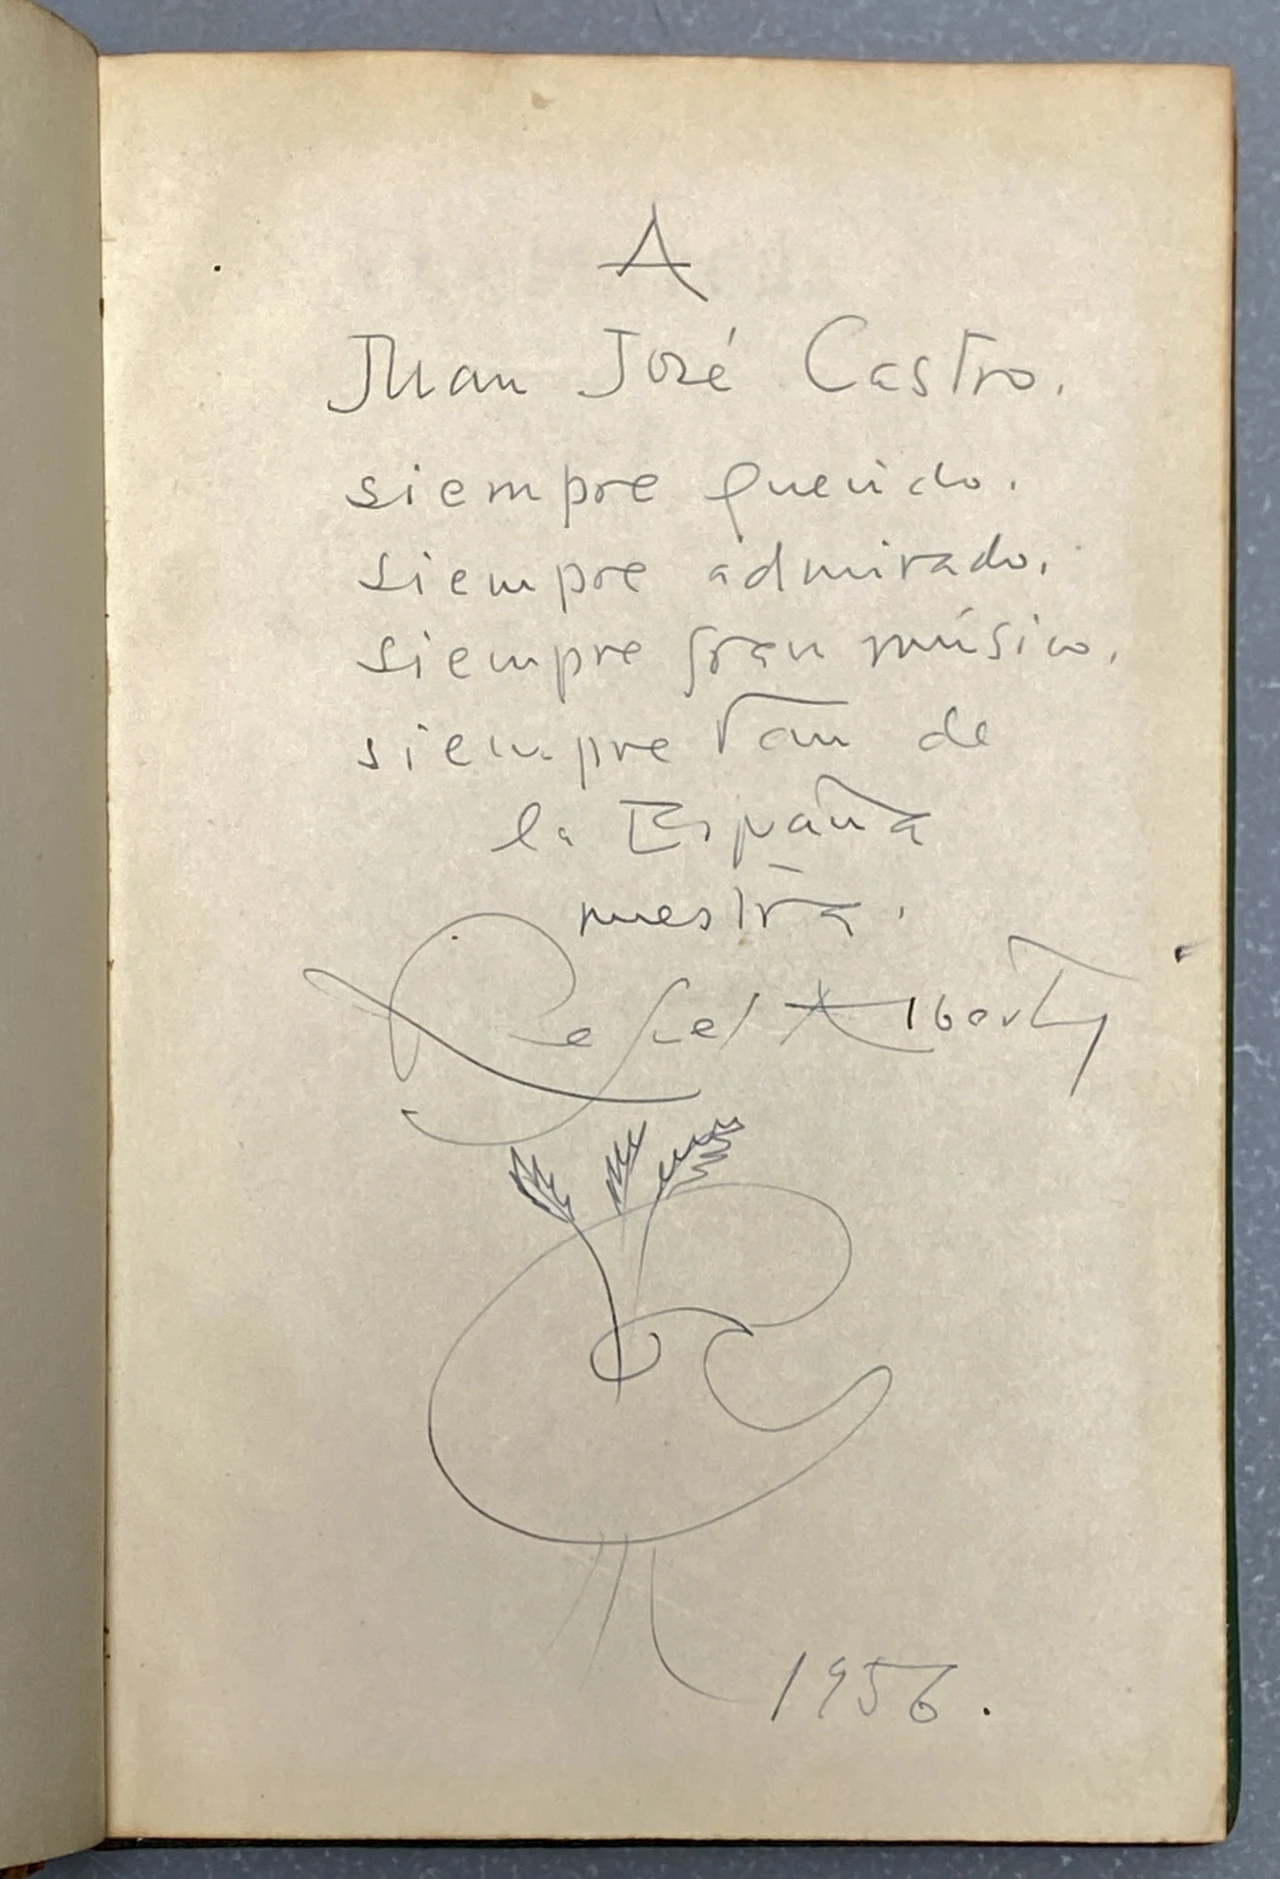 A
Juan José Castro,
siempre querido,
siempre admirado,
siempre gran músico,
siempre tan de
la España
nuestra.
Rafael Alberti
1956.